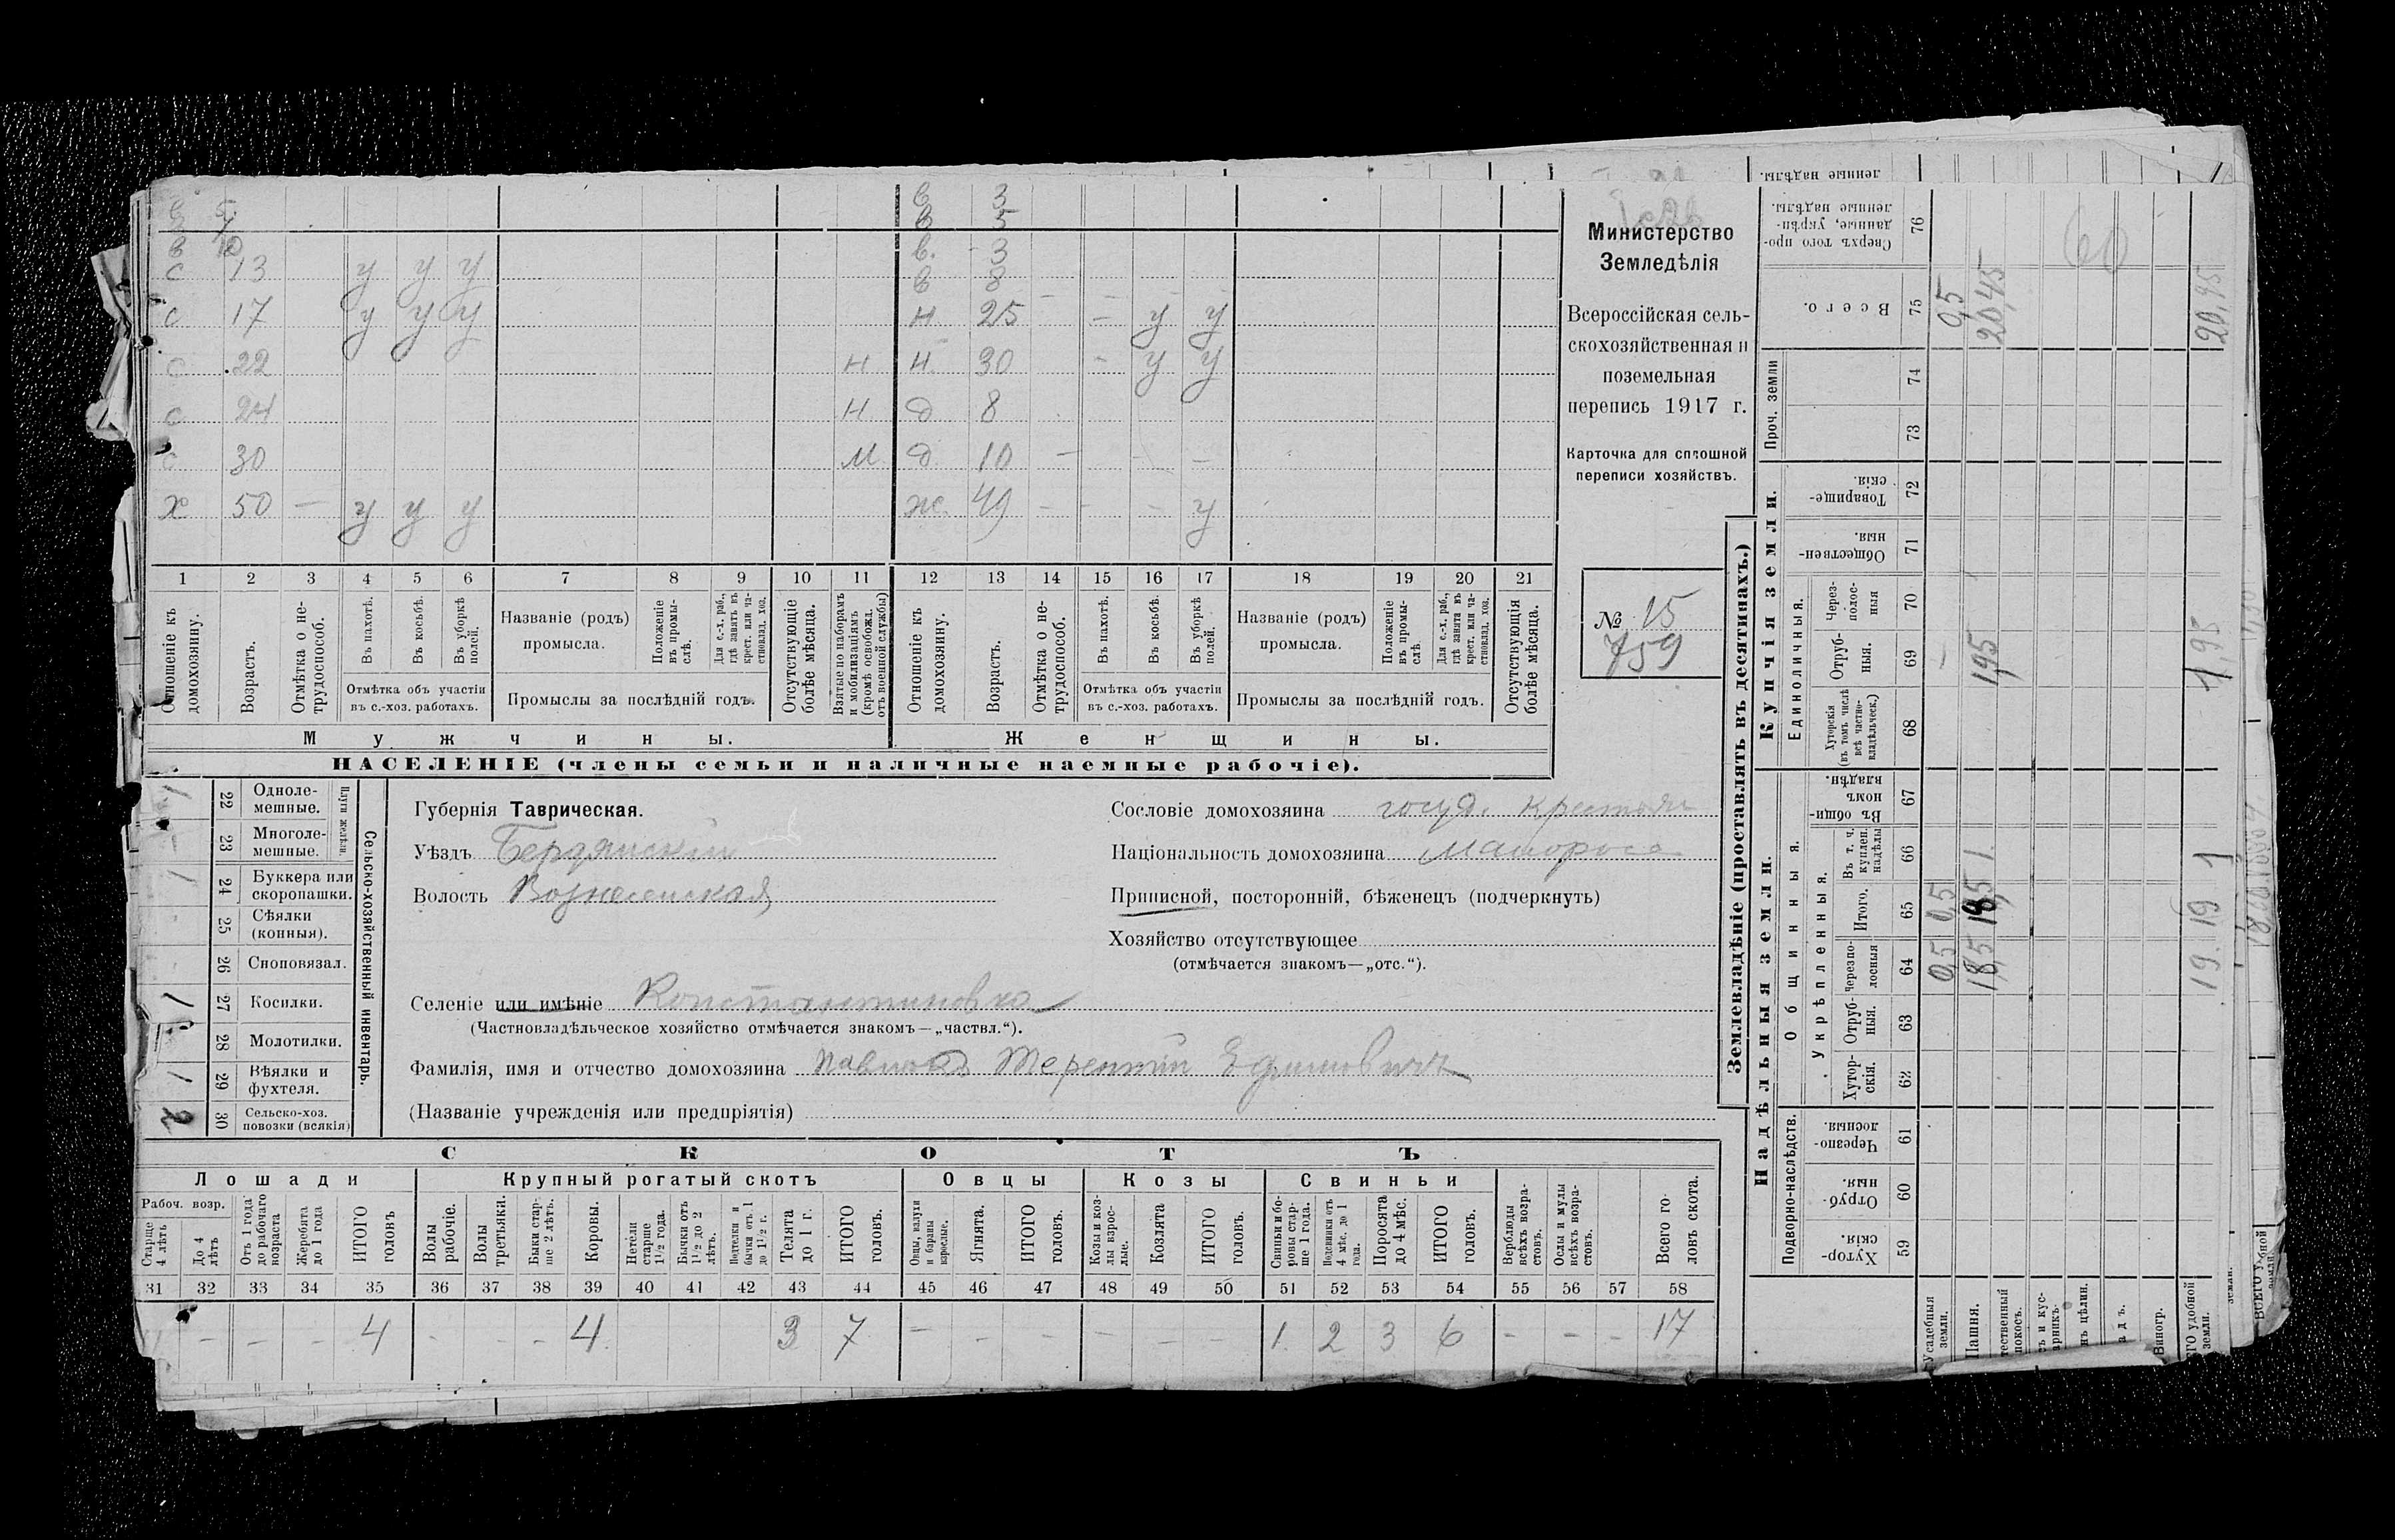 в 5 в 3
7 в 5
в 10 в. 3
с 13 у у у в 8
с 17 у у у н 25 у у
с 22 н н 30 у у
с 24 н д 8
с 30 м д 10
х 50 — у у у ж. 49 у
1 2 3 4 5 6 7 8 9 10 11 12 13 14 15 16 17 18 19 20 21
Отношеніе къ домохозяину.
Возрастъ.
Отмѣтка о нетрудоспособ.
Въ пахотѣ.
Въ косьбѣ.
Въ уборкѣ полей.
Отмѣтка объ участіи въ с.-хоз. работахъ.
Названіе (родъ) промысла.
Положеніе въ промыслѣ.
Для с.-х. раб., гдѣ занятъ въ крест. или частновлад. хоз.
Промыслы за послѣдній годъ.
Отсутствующіе болѣе мѣсяца.
Взятые по наборамъ и мобилизаціямъ (кромѣ освобожд. отъ военной службы)
Отношеніе къ домохозяину.
Возрастъ.
Отмѣтка о нетрудоспособ.
Въ пахотѣ.
Въ косьбѣ.
Въ уборкѣ полей.
Отмѣтка объ участіи въ с.-хоз. работахъ.
Названіе (родъ) промысла.
Положеніе въ промыслѣ
Для с.-х. раб., гдѣ занята въ крест. или частновлад. хоз.
Промыслы за послѣдній годъ.
Отсутствующія болѣе мѣсяца.
Мужчины.
Женщины.
НАСЕЛЕНІЕ (члены семьи и наличные наемные рабочіе).
Министерство
Земледѣлія
Всероссійская сель-
скохозяйственная и
поземельная
перепись 1917 г.
Карточка для сплошной
переписи хозяйствъ.
№ 15
759
Сельско-хозяйственный инвентарь.
Плуги желѣзн.
1 22 Однолемешные.
- 23 Многолемешные.
1 24 Буккера или скоропашки.
- 25 Сѣялки (конныя).
- 26 Сноповязал.
1 27 Косилки.
28 Молотилки.
1 29 Вѣялки и фухтеля.
2 30 Сельско-хоз. повозки (всякія)
Губернія Таврическая.
Уѣздъ Бердянскій
Волость Вознесенская
Селеніе или имѣніе Константиновка
(Частновладѣльческое хозяйство отмѣчается знакомъ—„частвл.“).
Сословіе домохозяина госуд. крестьян
Національность домохозяина Малоросс
Приписной, посторонній, бѣженецъ (подчеркнуть)
Хозяйство отсутствующее
(отмѣчается знакомъ—„отс.“).
Фамилія, имя и отчество домохозяина Терентій Ефимовичъ
(Названіе учрежденія или предпріятія)
СКОТЪ
Лошади Крупный рогатый скотъ Овцы Козы Свиньи
Рабоч. возр.
Старше 4 лѣтъ
До 4 лѣтъ
Отъ 1 года до рабочаго возраста
Жеребята до 1 года
ИТОГО головъ
Волы рабочіе.
Волы третьяки.
Быки старше 2 лѣтъ.
Коровы.
Нетели старше 1½ года.
Бычки отъ 1½ до 2 лѣтъ.
Подтелки и бычки отъ 1 до 1½ г.
Телята до 1 г.
ИТОГО головъ.
Овцы, валухи и бараны взрослые.
Ягнята.
ИТОГО головъ.
Козы и козлы взрослые.
Козлята
ИТОГО головъ.
Свиньи и боровы старше 1 года.
Подсвинки отъ 4 мѣс. до 1 года.
Поросята до 4 мѣс.
ИТОГО головъ.
Верблюды всѣхъ возрастовъ.
Ослы и мулы всѣхъ возрастовъ.
Всего головъ скота.
31 32 33 34 35 36 37 38 39 40 41 42 43 44 45 46 47 48 49 50 51 52 53 54 55 56 57 58
- - - 4 - - - 4 3 7 - - - - - - 1 2 3 6 - - - 17
Землевладѣніе (проставлять въ десятинахъ.)
Надѣльныя земли.
Купчія земли.
Проч. земли
Подворно-наслѣдств.
Общинныя.
Укрѣпленныя.
Единоличныя.
Хуторскія. 59
Отрубныя. 60
Черезполосныя. 61
Хуторскія. 62
Отрубныя. 63
Черезполосныя 64
Итого. 65
Въ т. ч. куплен. надѣлы 66
Въ общинномъ владѣн. 67
Хуторскія (въ томъ числѣ всѣ частновладѣльческ.) 68
Отрубныя. 69
Черезполосныя 70
Общественныя. 71
Товарищескія. 72
73
74
Всего. 75
Сверхъ того проданные, укрѣпленные надѣлы. 76
Усадебныя земли. 0,5 0,5 — 0,5
Пашня. 18,5 18,5 1. 1,95 20,45
60
19. 19 1 1,95 20,95
ленные надѣлы.